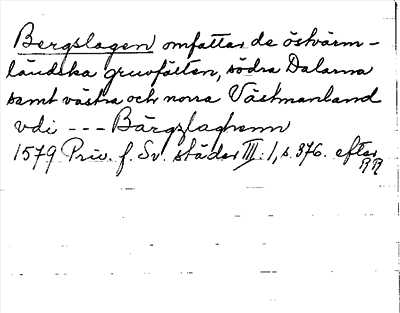 Bergslagen omfattar de östvärm-
ländska gruvfälten, södra Dalarna
samt västra och norra Västmanland
vdi --- Bärgzlaghenn
1579 Priv. f. Sv. städer III: 1, s. 376. efter
RR